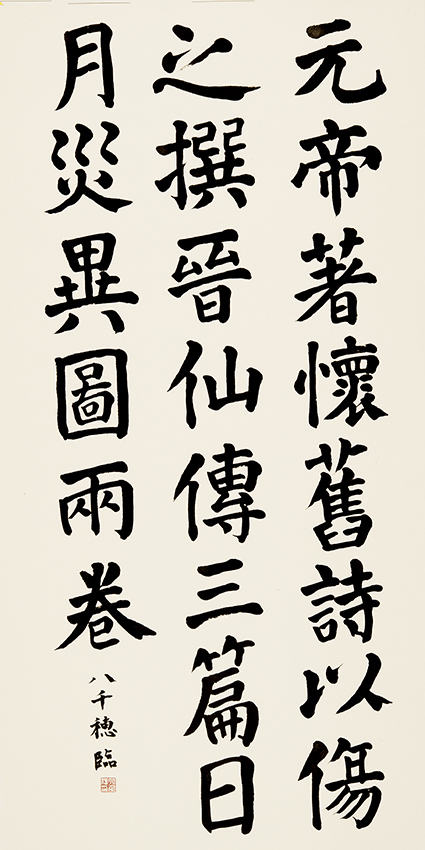 元帝著懷舊詩以傷
之撰晉仙傳三篇日
月災異圖兩卷
八千穂臨